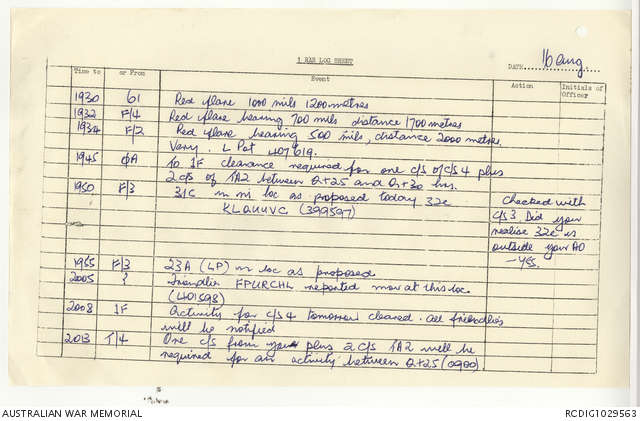 1 RAR LOG SHEET
DATE 16 Aug
Time to or From Event Action Initials of Officer
1930 61 Red flare 1000 mils 1200 metres
1932 F/4 Red flare bearing 700 mils distance 1700 metres
1934 F/2 Red flare bearing 500 mils, distance 2000 metres.
Very. L Pot 407619.
1945 ØA To 1F clearance required for one c/s of c/s 4 plus
2 c/s of 1A2 between 0+25 and 0+30 hrs.
1950 F/3 31C in ni loc as proposed today 32c Checked with
KLQUUVC (399597) c/s 3. Did you
realise 32c is
outside your AO
- Yes.
1955 F/3 23A (LP) in loc as proposed
2005 ? Friendlie FPURCHL reported mov at this loc.
(401598)
2008 1F Activity for c/s 4 tomorrow cleared. All friendlies
will be notified
2013 T/4 One c/s from you plus 2 c/s 1A2 will be
required for an activity between 0+25 (0900).
AUSTRALIAN WAR MEMORIAL RCDIG1029563